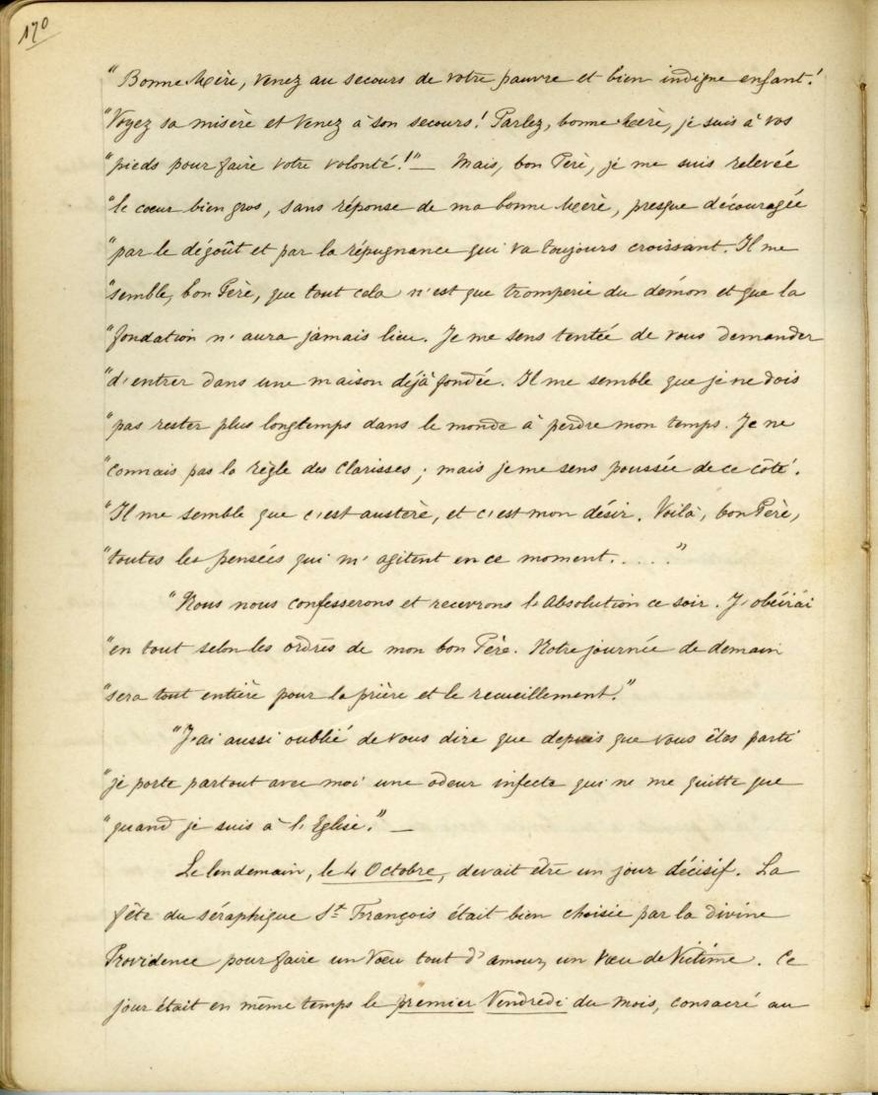 170
"Bonne Mère, venez au secours de votre pauvre et bien indigne enfant!
"Voyez sa misère et venez à son secours! Parlez, bonne Mère, je suis à vos
"pieds pour faire votre volonté!"— Mais, bon Père, je me suis relevée
"le cœur bien gros, sans réponse de ma bonne Mère, presque découragée
"par le dégoût et par la répugnance qui va toujours croissant. Il me
"semble, bon Père, que tout cela n'est que tromperie du démon et que la
"fondation n'aura jamais lieu. Je me sens tentée de vous demander
"d'entrer dans une maison déjà fondée. Il me semble que je ne dois
"pas rester plus longtemps dans le monde à perdre mon temps. Je ne
"connais pas la règle des Clarisses; mais je me sens poussée de ce côté.
"Il me semble que c'est austère, et c'est mon désir. Voilà, bon Père,
"toutes les pensées qui m'agitent en ce moment....."
"Nous nous confesserons et recevrons l'Absolution ce soir. J'obéirai
"en tout selon les ordres de mon bon Père. Notre journée de demain
"sera tout entière pour la prière et le recueillement."
"J'ai aussi oublié de vous dire que depuis que vous êtes parti
"je porte partout avec moi une odeur infecte qui ne me quitte que
"quand je suis à l'Eglise."—
Le lendemain, le 4 Octobre, devait être un jour décisif. La
fête du séraphique St François était bien choisie par la divine
Providence pour faire un Vœu tout d'amour, un Vœu de Victime. Ce
jour était en même temps le premier Vendredi du mois, consacré au